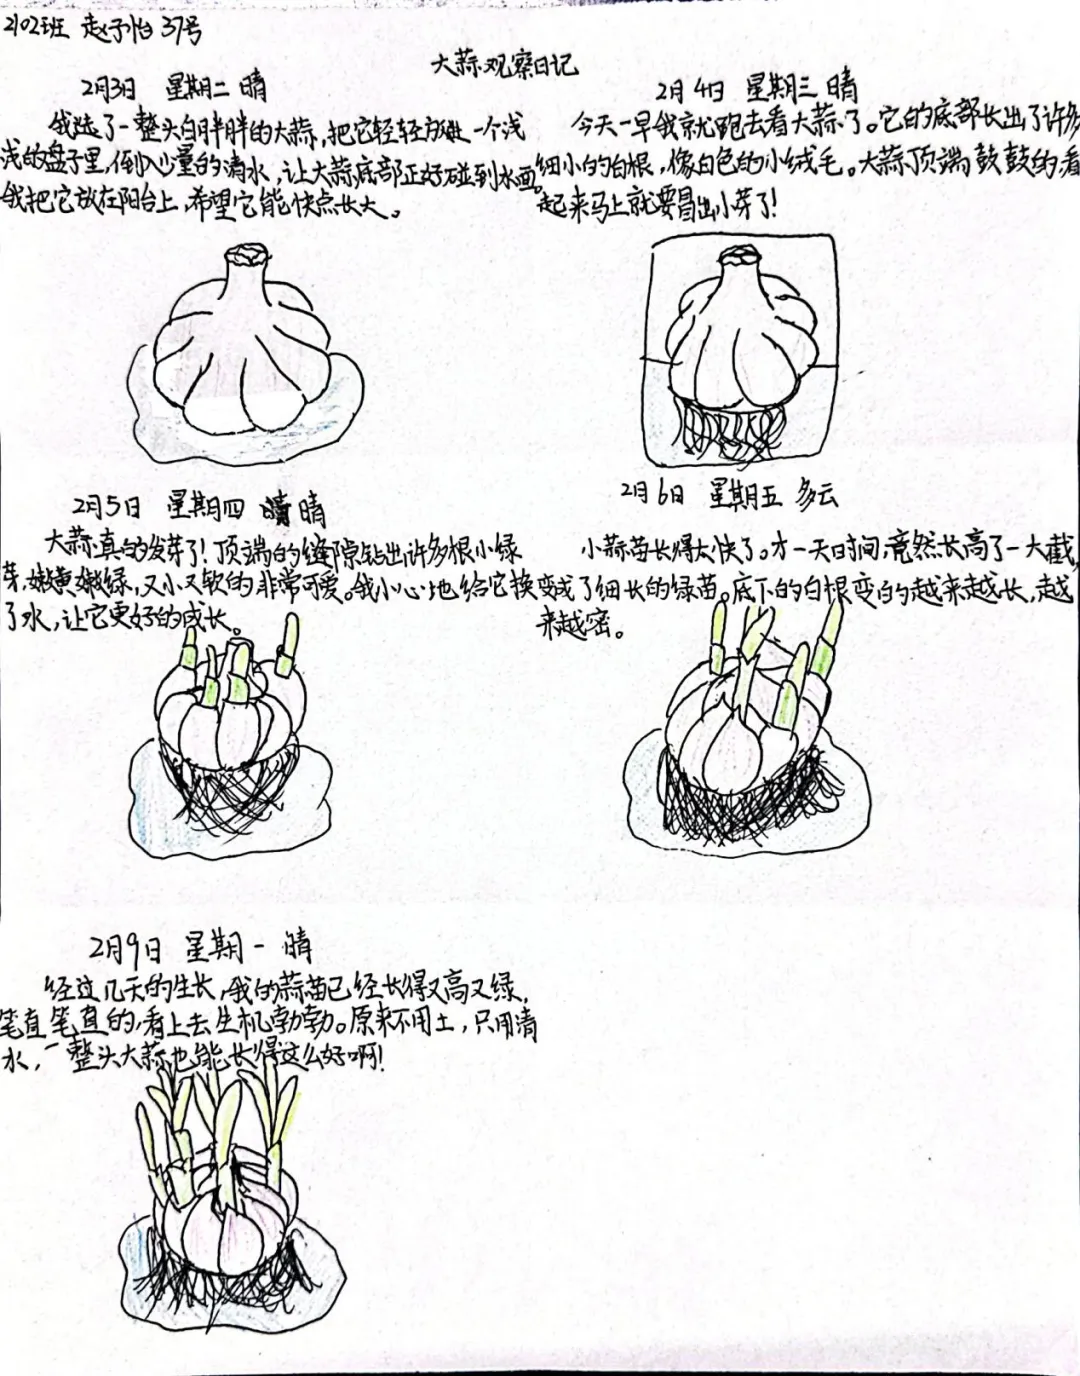 2102班 赵予怡 37号
大蒜观察日记
2月3日 星期二 晴
我选了一整头白胖胖的大蒜,把它轻轻放进一个浅
浅的盘子里,倒入少量的清水,让大蒜底部正好碰到水面。
我把它放在阳台上,希望它能快点长大。
2月4日 星期三 晴
今天一早我就跑去看大蒜了。它的底部长出了许多
细小的白根,像白色的小绒毛。大蒜顶端鼓鼓的,看
起来马上就要冒出小芽了!
2月5日 星期四 晴
大蒜真的发芽了!顶端的缝隙钻出许多根小绿
芽,嫩黄嫩绿,又小又软的非常可爱。我小心地给它换
了水,让它更好的成长。
2月6日 星期五 多云
小蒜苗长得太快了。才一天时间,竟然长高了一大截,
变成了细长的绿苗。底下的白根变的越来越长,越
来越密。
2月9日 星期一 晴
经过几天的生长,我的蒜苗已经长得又高又绿,
笔直笔直的,看上去生机勃勃。原来不用土,只用清
水,一整头大蒜也能长得这么好啊!